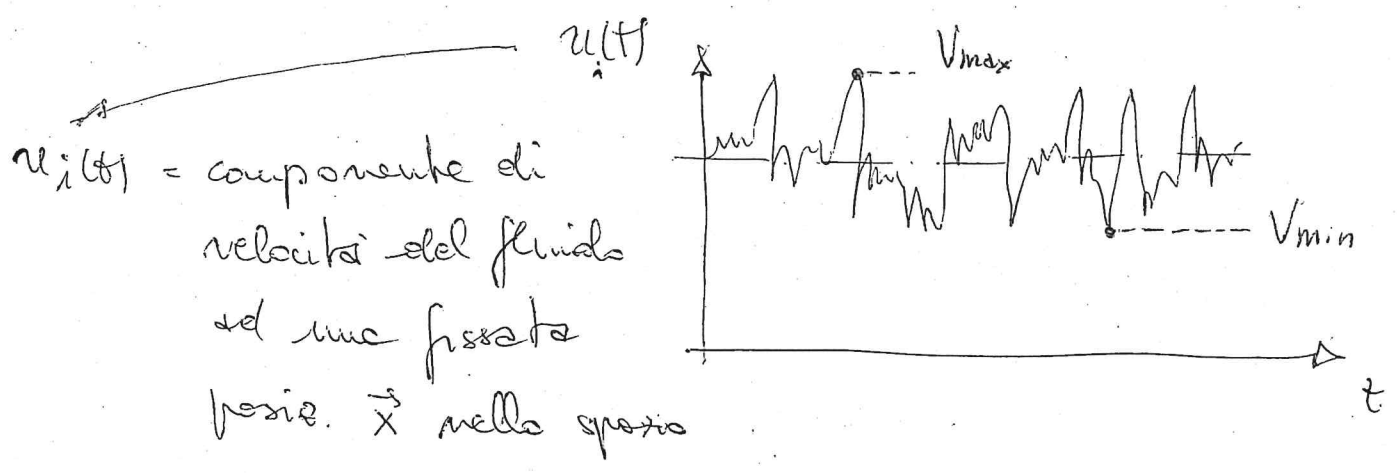 u_i(t)
Vmax
u_i(t) = componente di
velocità del fluido
ad una fissata
posiz. x⃗ nello spazio
Vmin
t